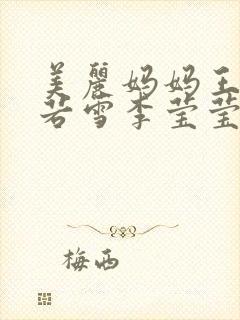 美麗妈妈王
若雪李莹莹
梅西